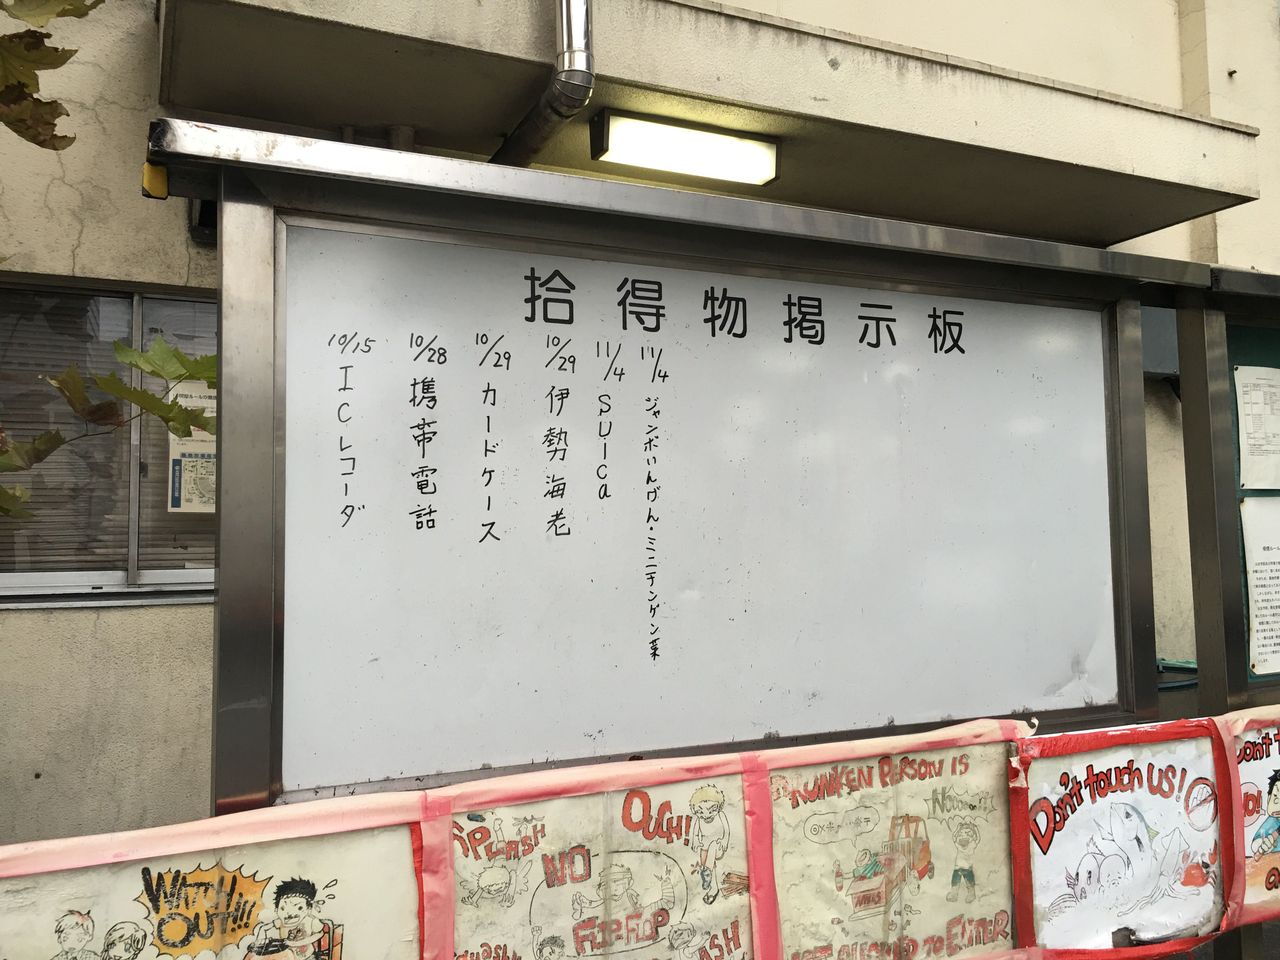 拾得物掲示板
10/15 ICレコーダ
10/28 携帯電話
10/29 カードケース
10/29 伊勢海老
11/4 SUICa
11/4 ジャンボいんげん・ミニチンゲン菜
WATCH OUT!!!
SPLASH
OUCH!
NO
FLIP-FLOP
DRUNKEN PERSON IS
NOT ALLOWED TO ENTER
Don't touch US!